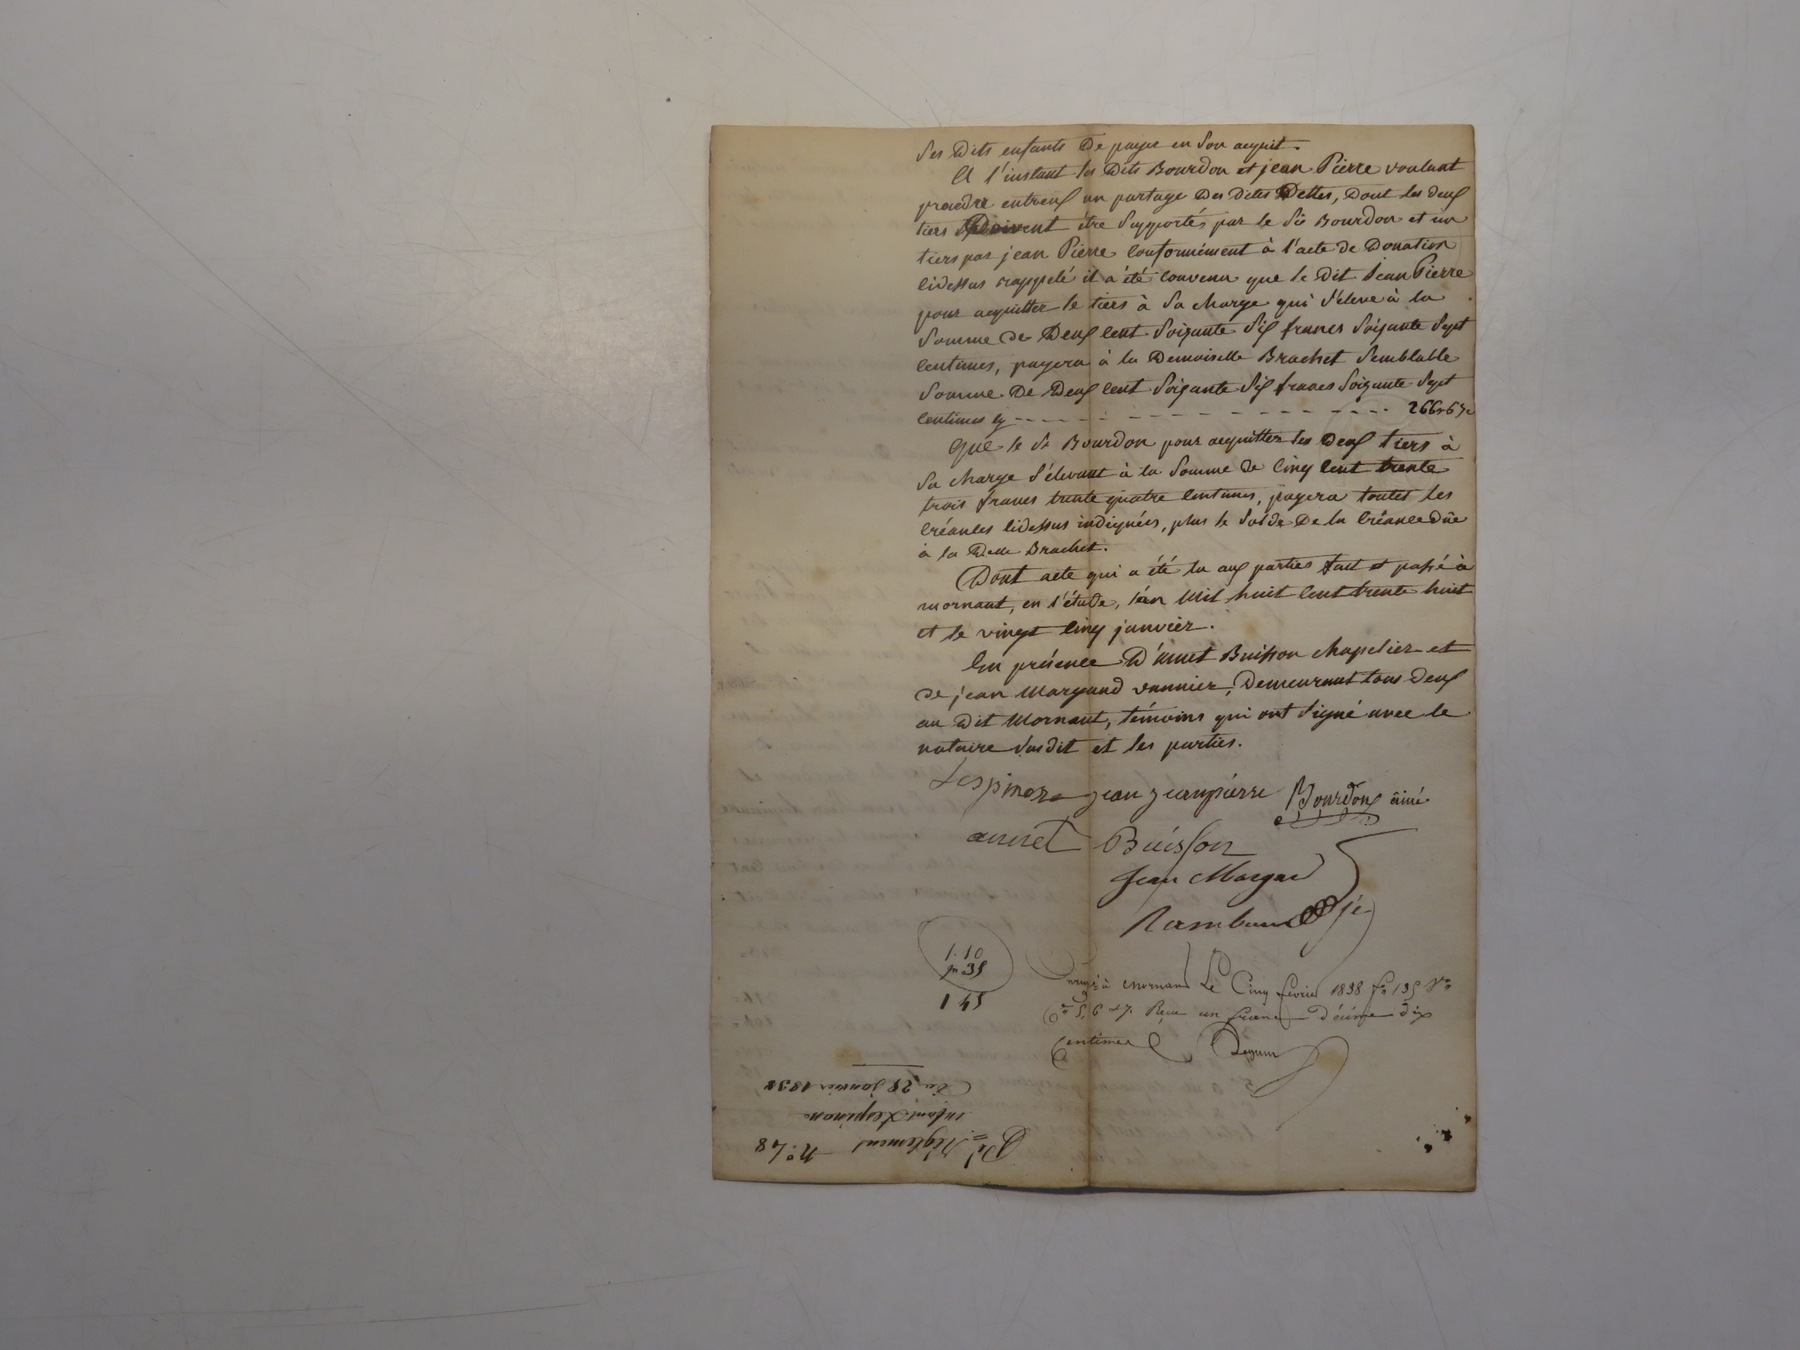 Ses Dits enfants De payer en Son acquit.
A l'instant les Dits Bourdon et jean Pierre voulant
prendre entreux un partage Des dites Dettes, Dont les deux
tiers Doivent être Supportés par le Sr Bourdon et un
tiers par jean Pierre Conformément à l'acte de Donation
Cidessus rappelé il a été Convenu que le Dit Jean Pierre
pour acquitter le tiers à Sa charge qui S'éleve à la
Somme de Deux Cent Soixante Six francs Soixante Sept
Centimes, payera à la Demoiselle Brachet Semblable
Somme De Deux Cent Soixante Six francs Soixante Sept
Centimes cy - - - - - - - - - - - - 266 67c
Que le Sr Bourdon pour acquitter les Deux tiers à
Sa charge S'élevant à la Somme de Cinq Cent trente
trois francs trente quatre Centimes, payera toutes les
Créances Cidessus indiquées, plus le Solde De la Créance dûe
à la Delle Brachet.
Dont acte qui a été lu aux parties fait et passé à
mornant, en l'étude, l'an Mil huit Cent trente huit
et le vingt Cinq janvier.
En présence D'annet Buisson chapelier et
de jean Margand vannier, Demeurant tous deux
au Dit Mornant, témoins qui ont Signé avec le
notaire Susdit et les parties.
Lespinasse jean jeanpierre Bourdon aimé
annet Buisson
Jean Margan
Rambau
1.10
35
1 45
Enregé à mornant Le Cinq février 1838 fo 135 Vo
Ces 5, 6 et 7. Reçu un franc décime dix
Centimes
Règlement No 48
enfant Lespinasse
Du 25 Janvier 1838